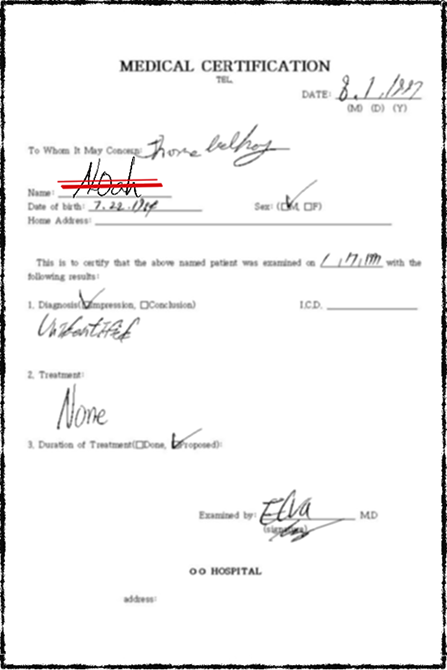 MEDICAL CERTIFICATION
TEL.
DATE: 8.1.1997
(M) (D) (Y)
To Whom It May Concern:
Name: Noah
Date of birth: 7.22.
Sex: (□M, □F)
Home Address:
This is to certify that the above named patient was examined on with the
following results:
1. Diagnosis(□Impression, □Conclusion)
I.C.D.
2. Treatment:
None
3. Duration of Treatment(□Done, □Proposed):
Examined by: Elva M.D
(signature)
○○ HOSPITAL
address: